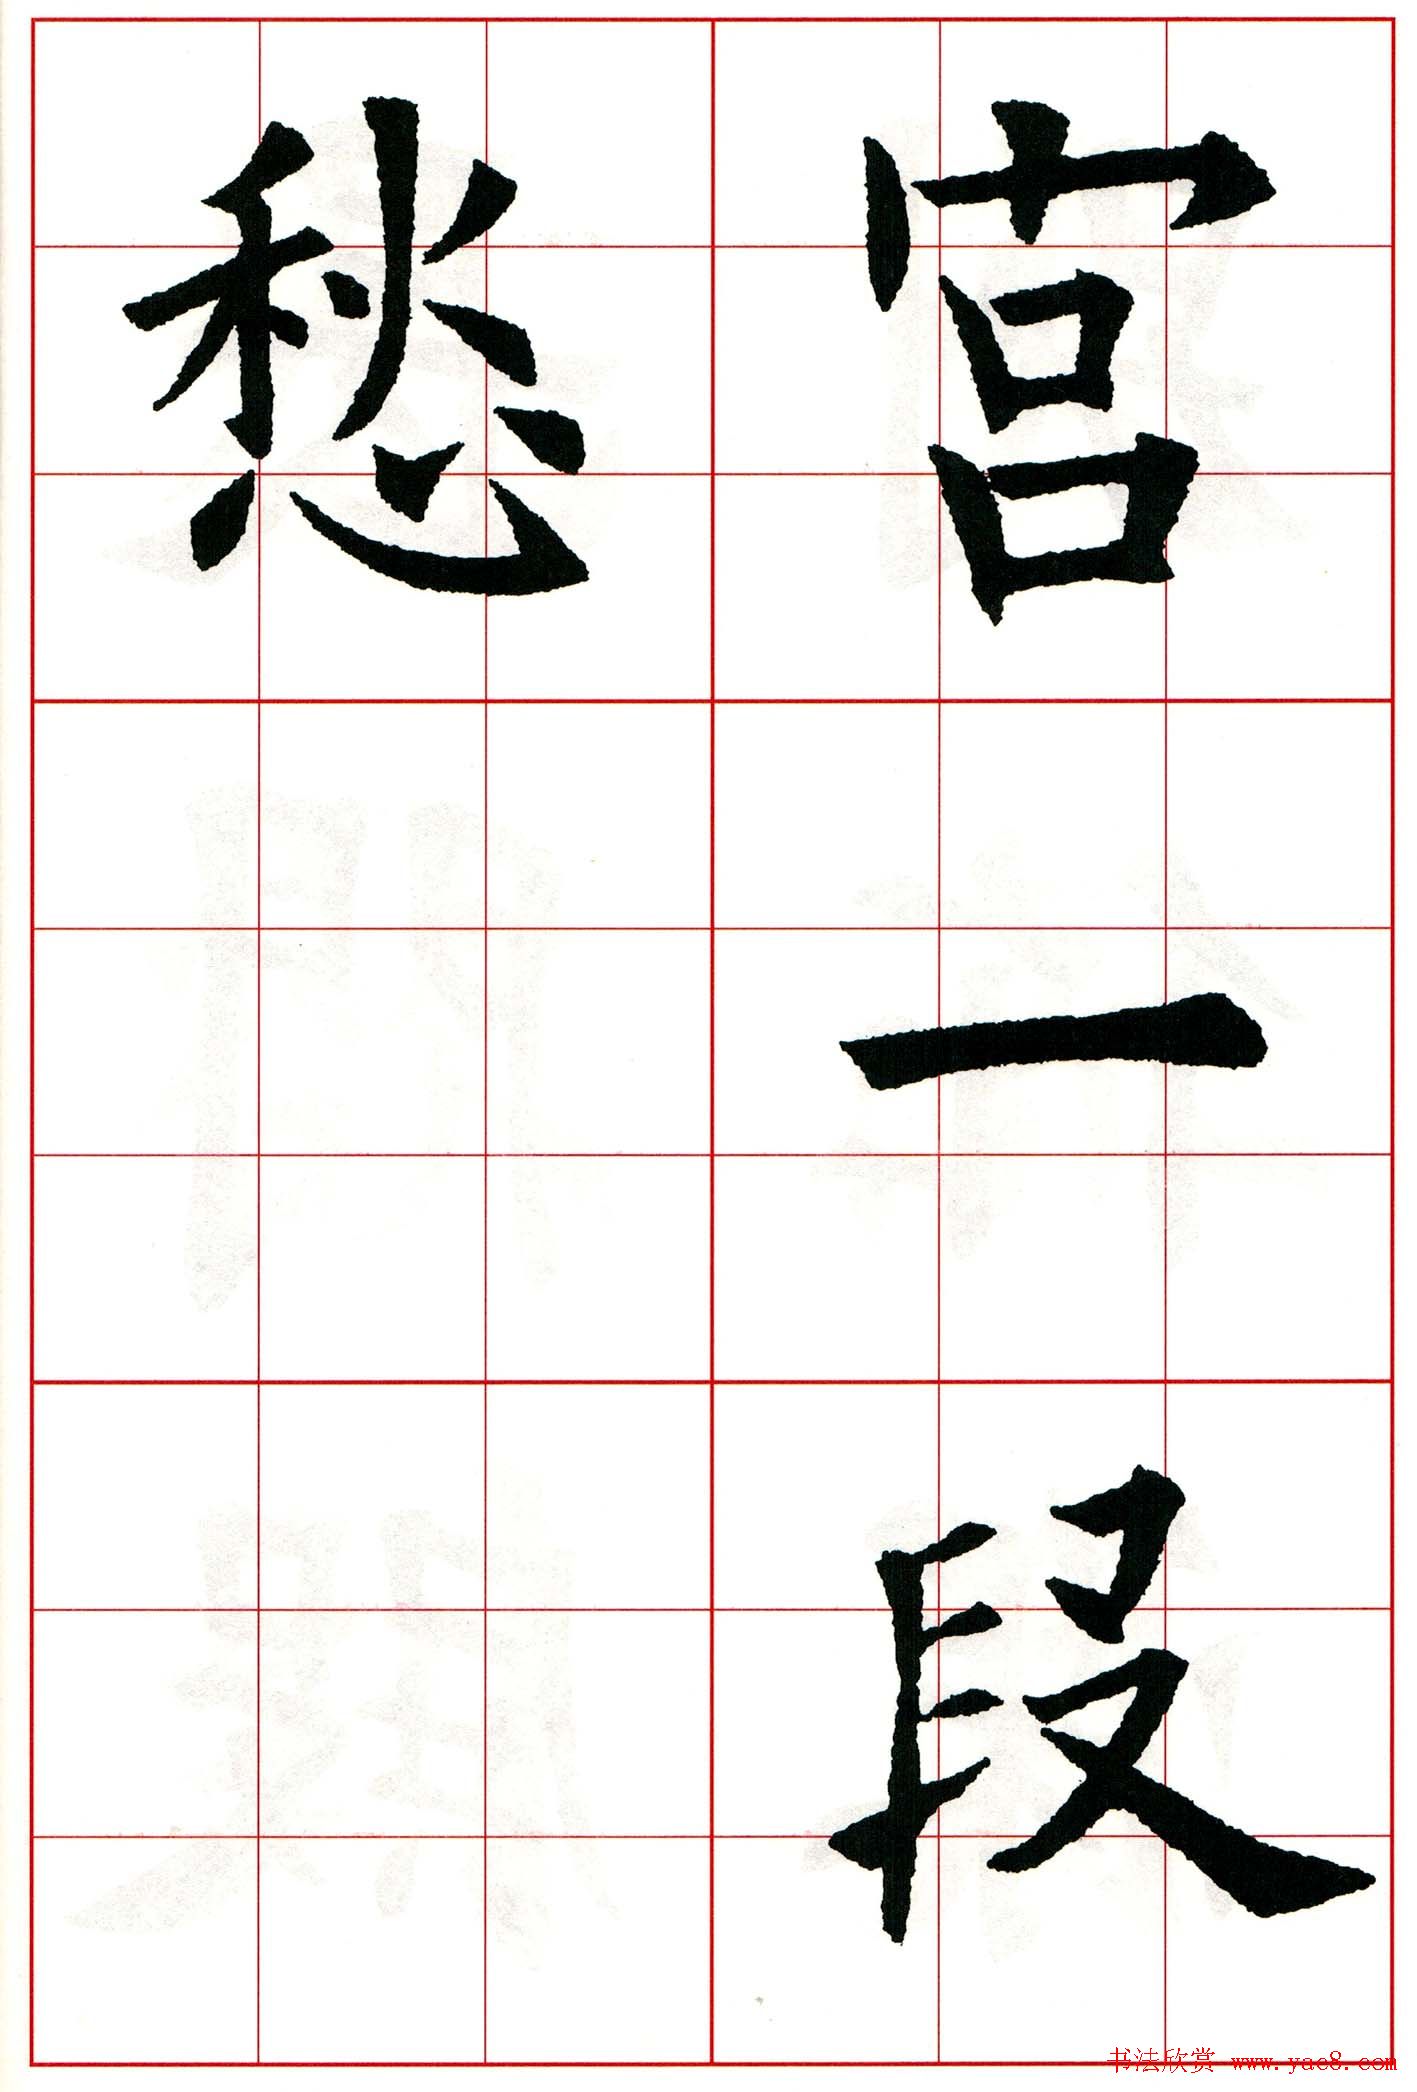 宫一段
愁
书法欣赏 www.yac8.com